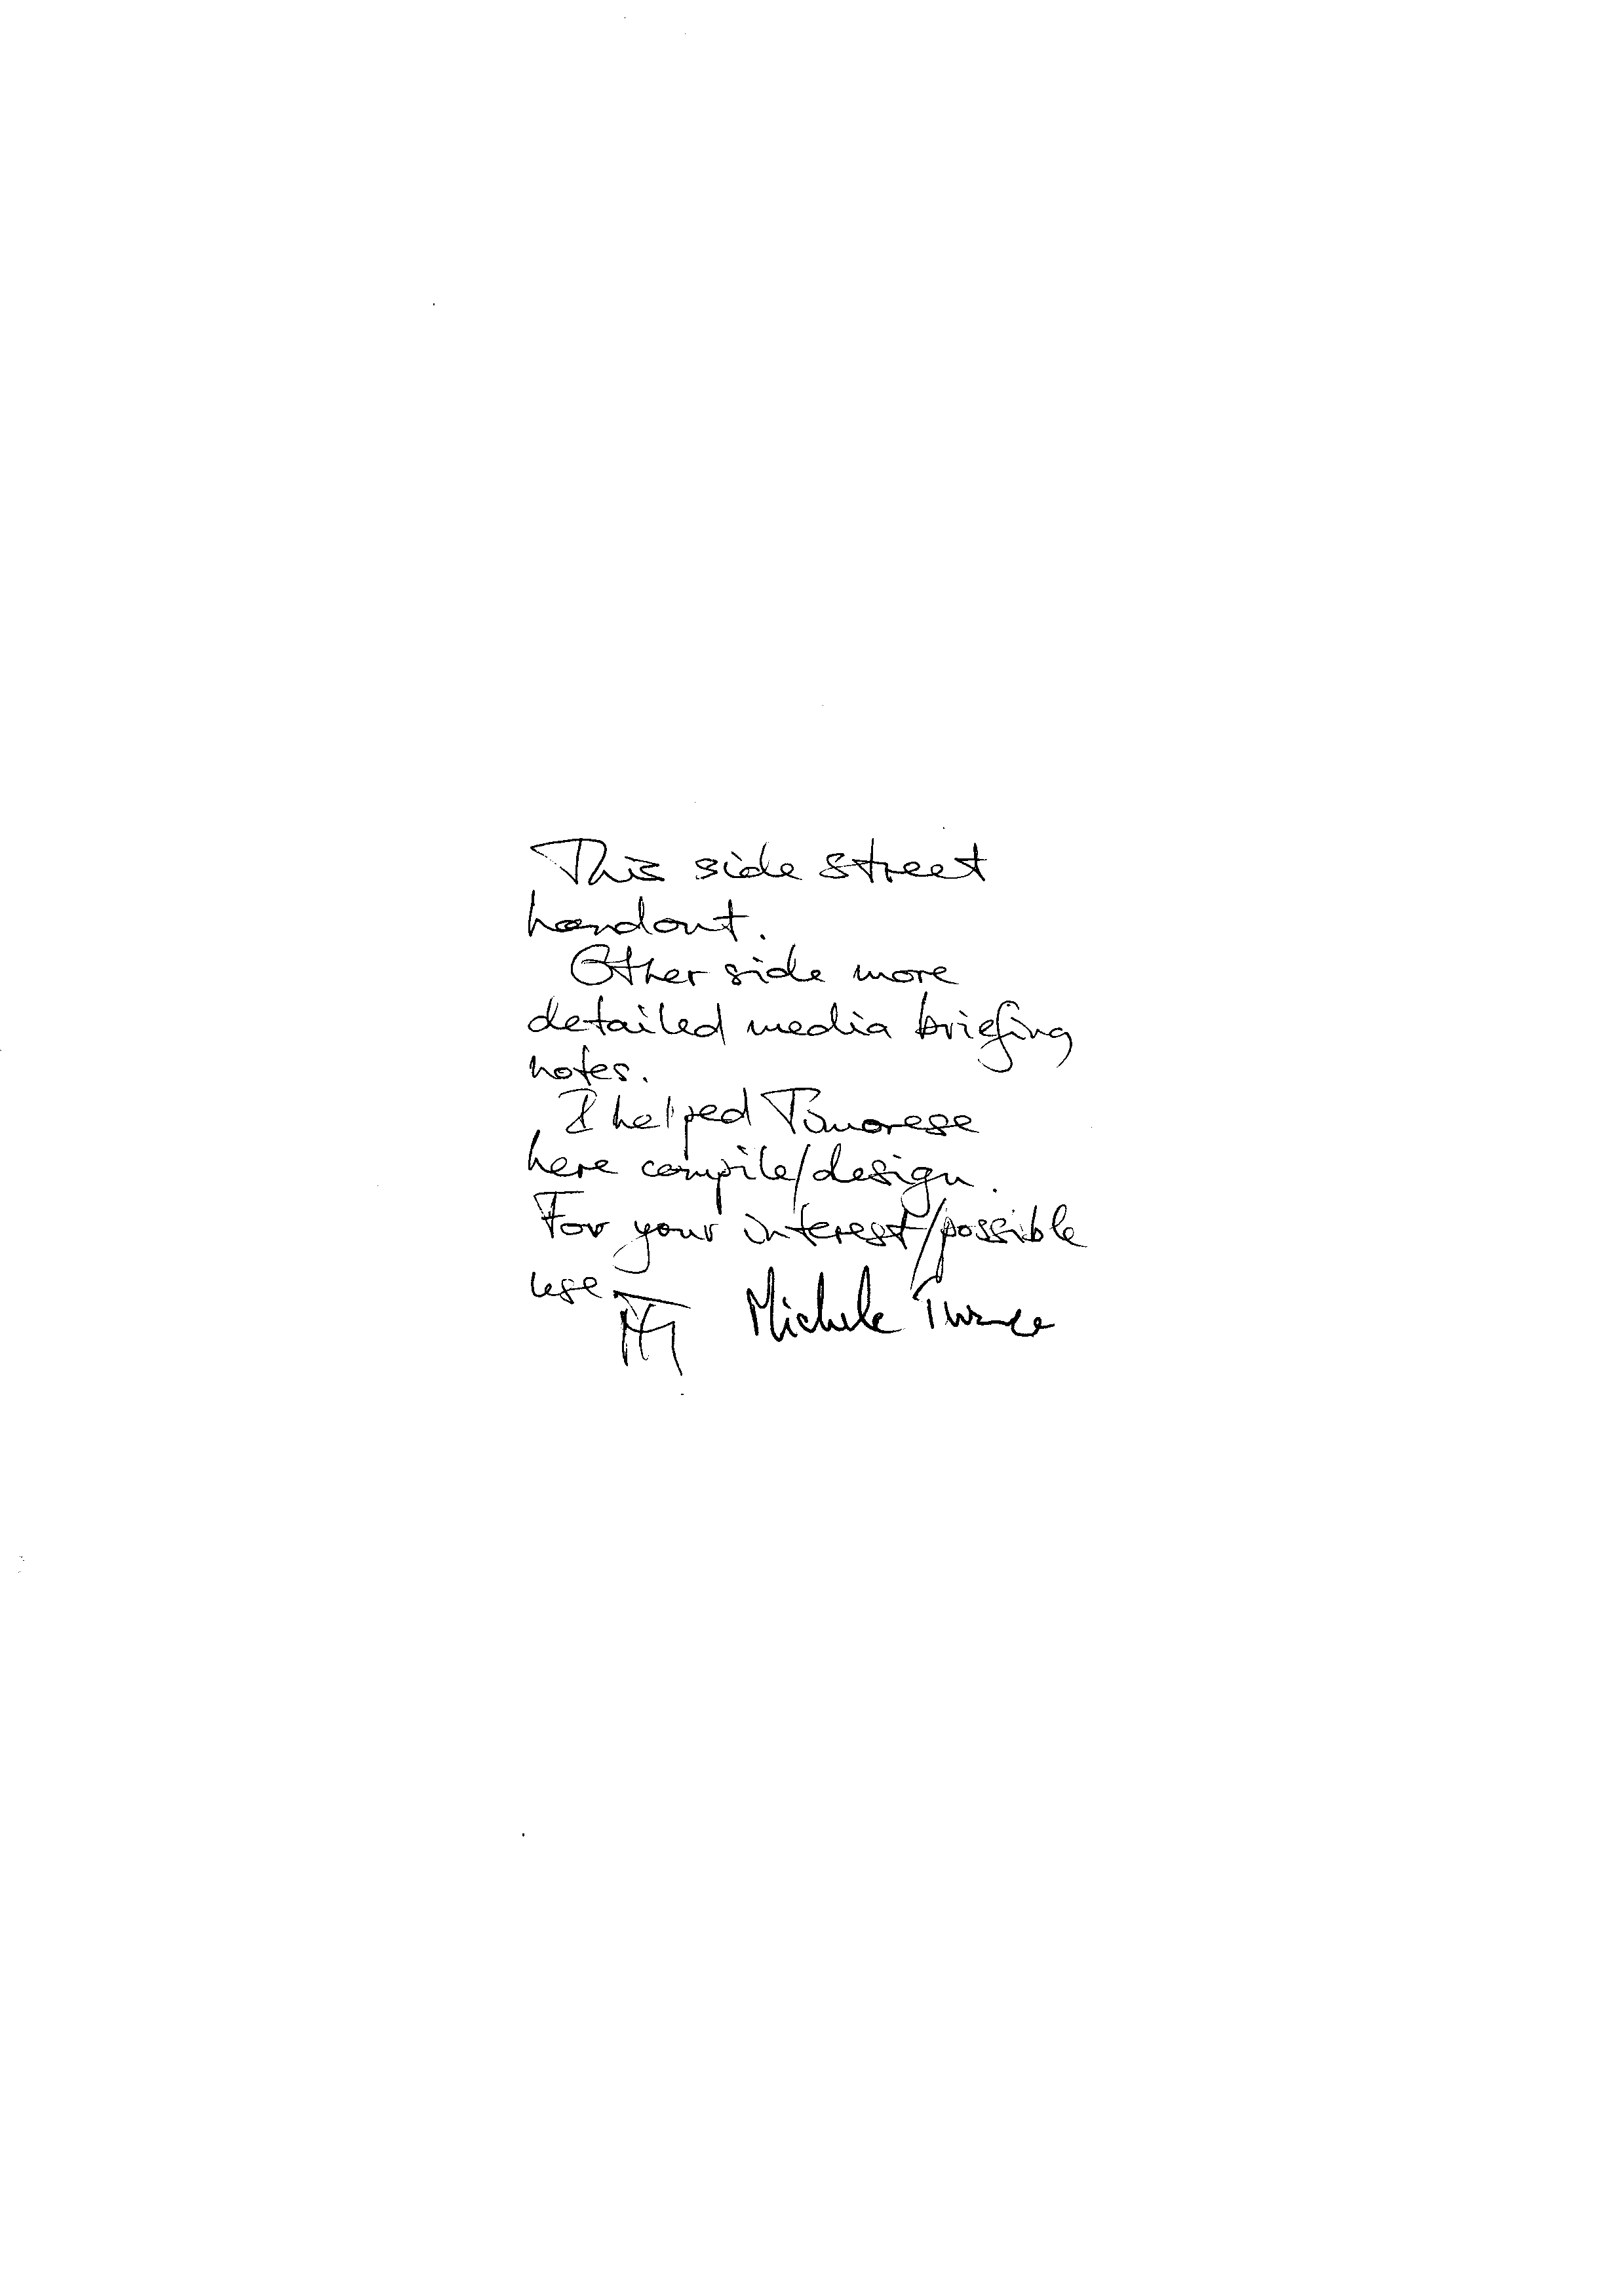 This side street
handout.
Other side more
detailed media briefing
notes.
I helped Timorese
here compile/design.
For your interest/possible
use
Michele